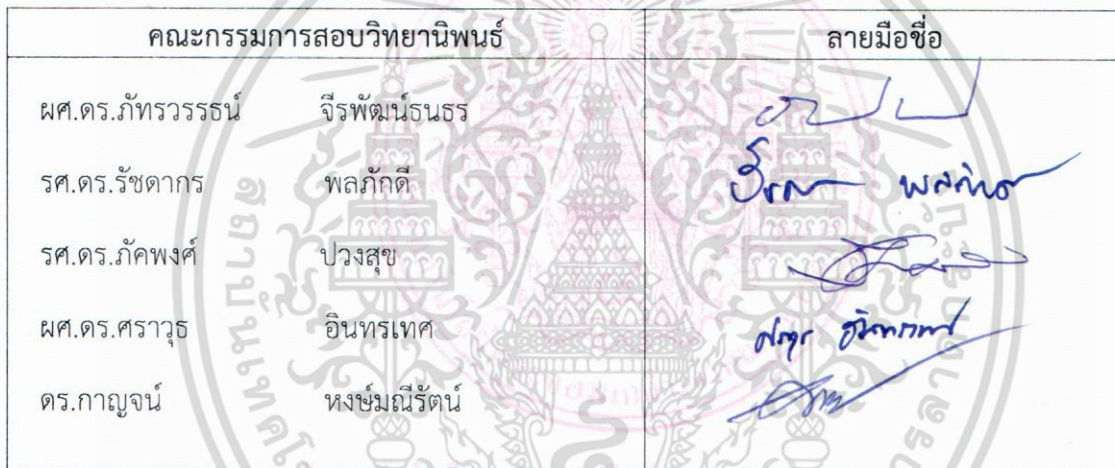 คณะกรรมการสอบวิทยานิพนธ์ ลายมือชื่อ
ผศ.ดร.ภัทรวรรธน์ จีรพัฒน์ธนธร
รศ.ดร.รัชดากร พลภักดี
รศ.ดร.ภัคพงศ์ ปวงสุข
ผศ.ดร.ศราวุธ อินทรเทศ
ดร.กาญจน์ หงษ์มณีรัตน์